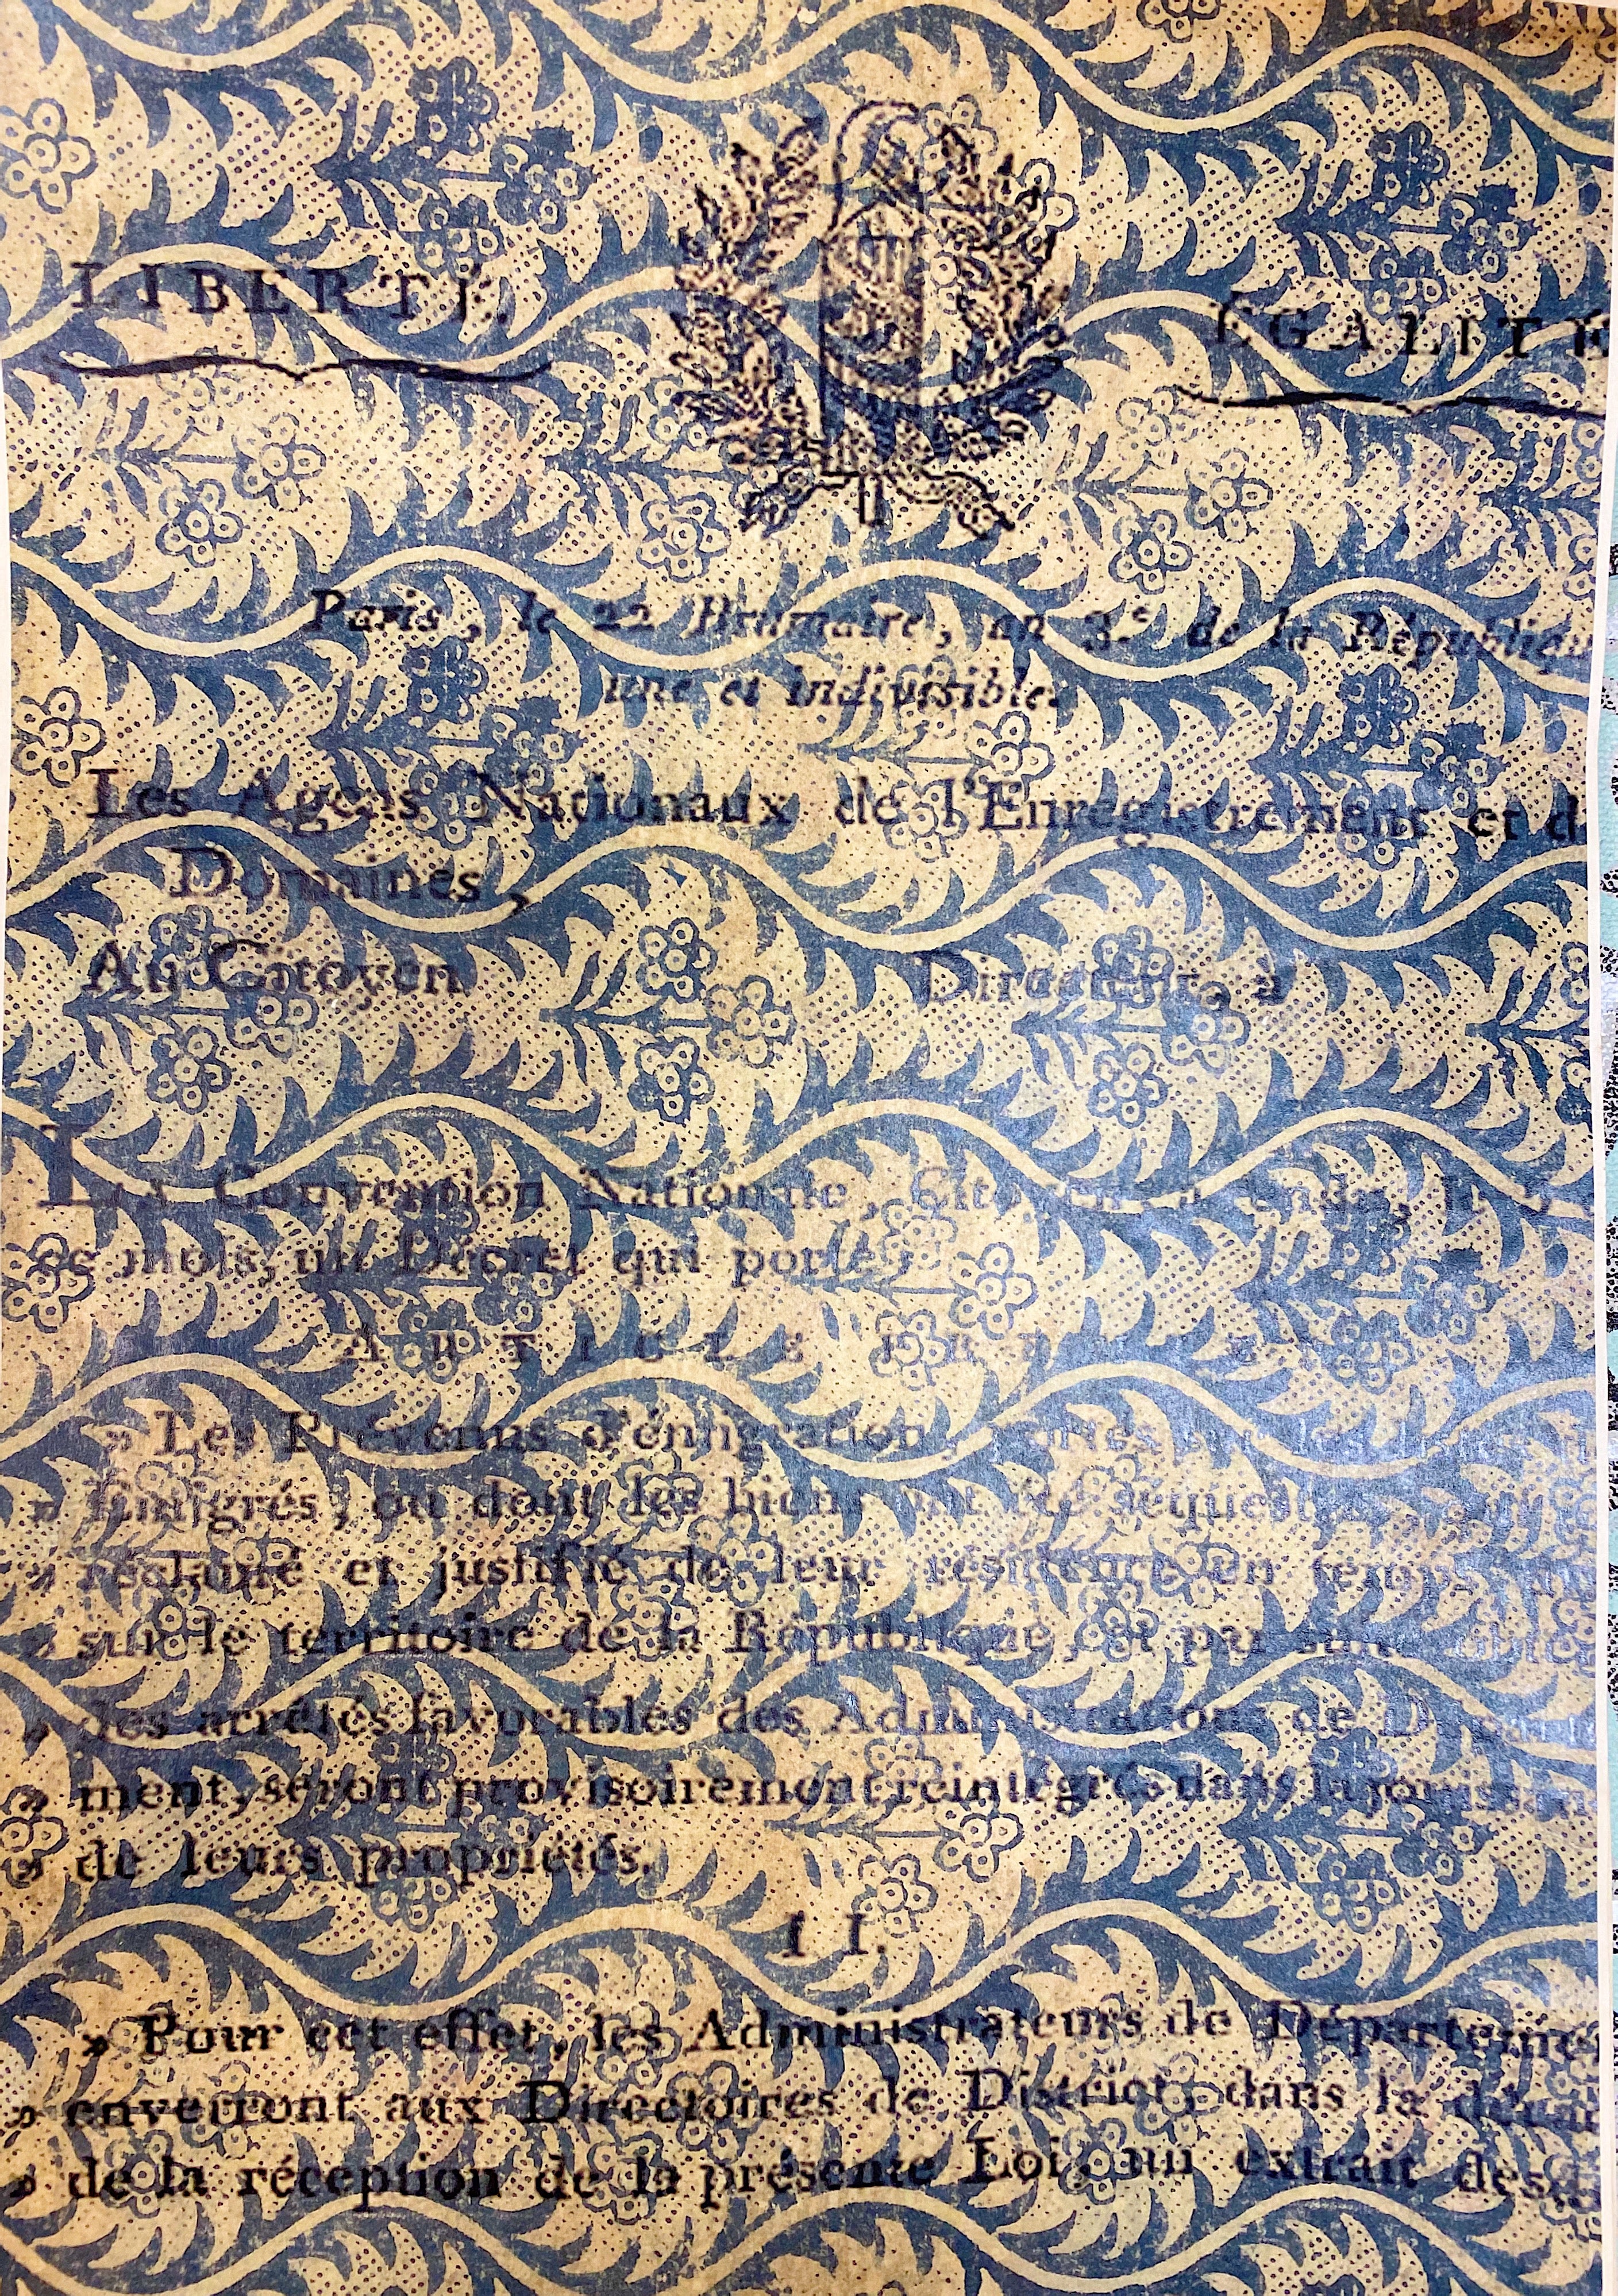 LIBERTÉ.
ÉGALITÉ
Paris, le 22 Brumaire, an 3.e de la République
une et indivisible.
Les Agens Nationaux de l'Enregistrement et d
Domaines,
Au Citoyen Directeur, à
LA Convention Nationale,
ce mois, un Décret qui porte,
ARTICLE PREMIER.
» Les Prévenus d'émigration, les
» Émigrés, ou dont les biens ont
» réclamé et justifié de leur résidence en temps
» sur le territoire de la République, et
» des arrêtés favorables des Administrations de
» ment, seront provisoirement réintégrés dans la jouissan
» de leurs propriétés.
II.
» Pour cet effet, les Administrateurs de Départeme
» enverront aux Directoires de District, dans la décad
» de la réception de la présente Loi, un extrait des